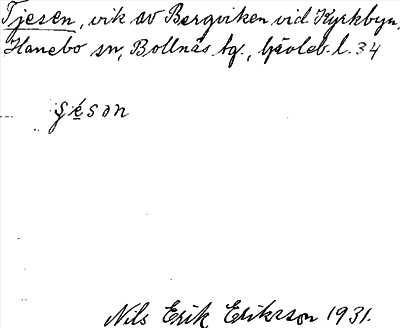 Tjesen, vik av Bergviken vid Kyrkbyn,
Hanebo sn, Bollnäs tg., Gävleb. l. 34
Nils Erik Eriksson 1931.